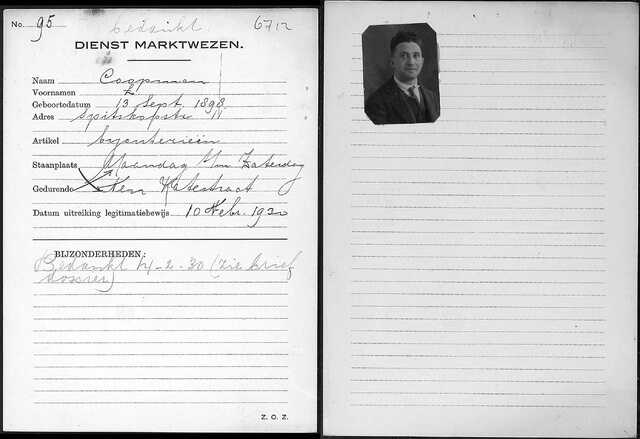 No. 95 bedankt 67 12
DIENST MARKTWEZEN.
Naam Coopman
Voornamen
Geboortedatum 13 Sept. 1898
Adres Spitskopstr
Artikel byouterieën
Staanplaats Maandag t/m Zaterdag
Gedurende Ten Katestraat
Datum uitreiking legitimatiebewijs 10 Febr. 1920
BIJZONDERHEDEN:
Bedankt 14-2-30 (zie brief
dossier)
Z. O. Z.